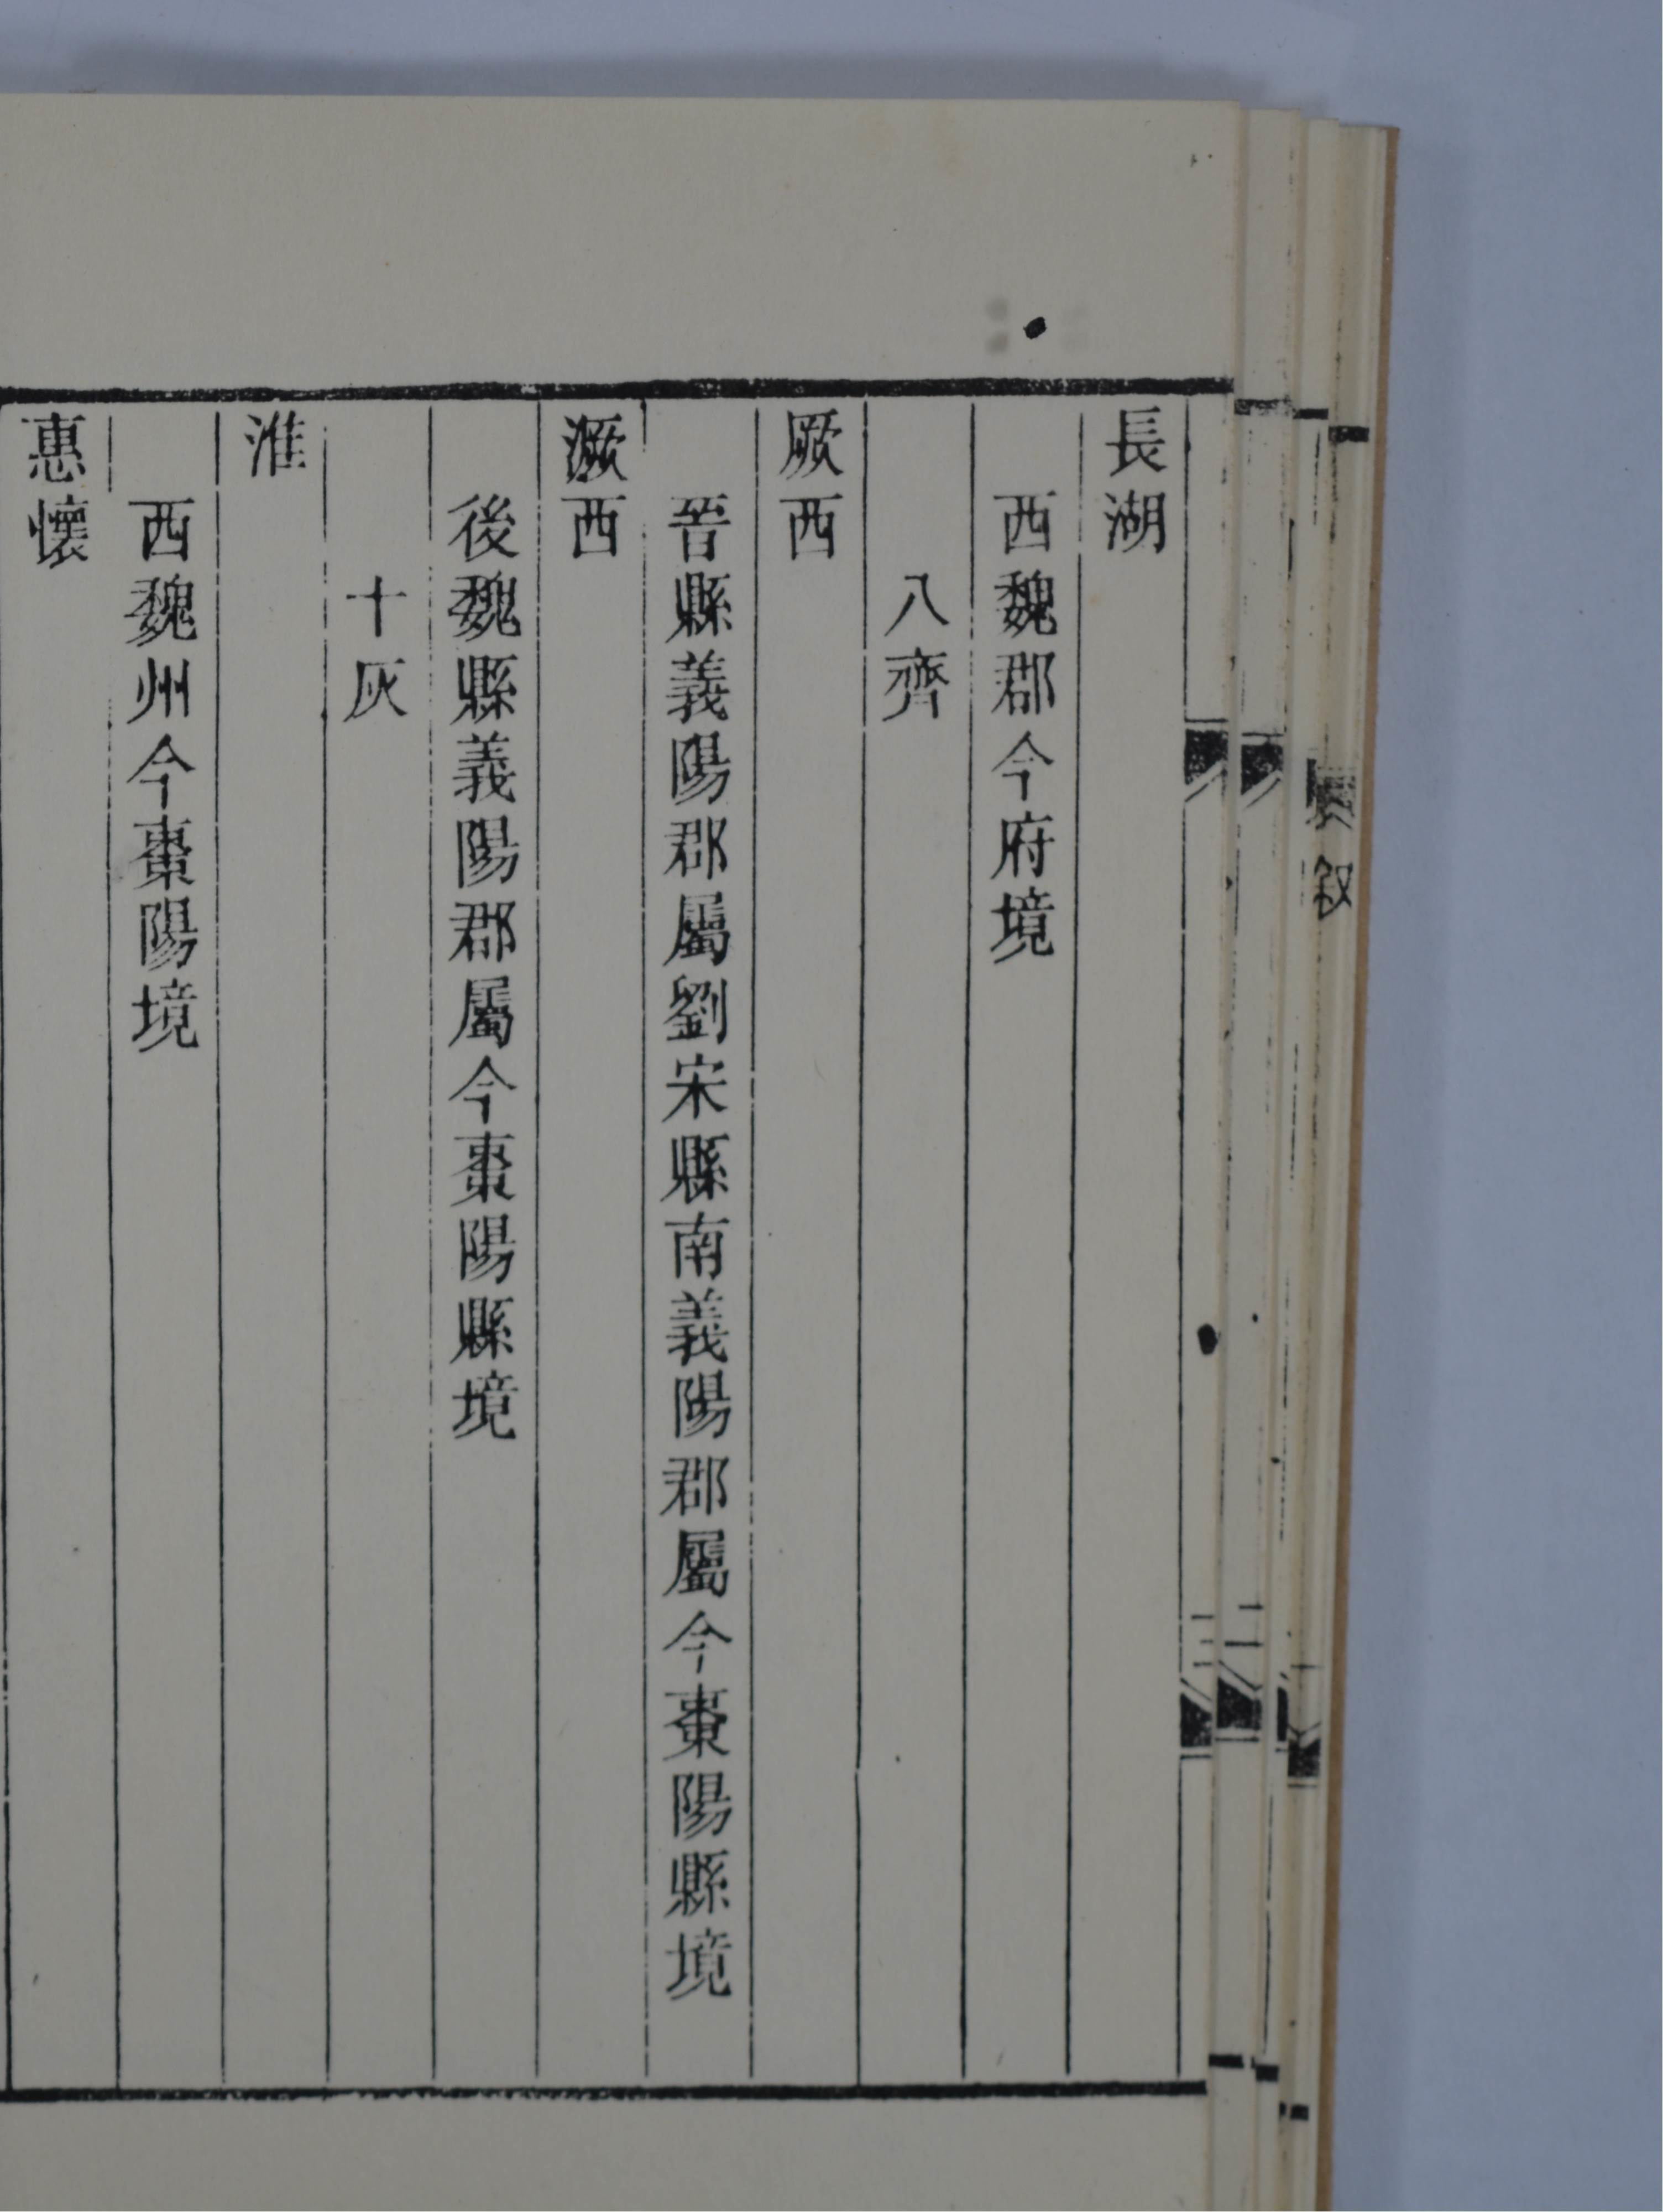 長湖
西魏郡今府境
八齊
厥西
晉縣義陽郡屬劉宋縣南義陽郡屬今棗陽縣境
㵐西
後魏縣義陽郡屬今棗陽縣境
十灰
淮
西魏州今棗陽境
惠懷
敘
三
二
一